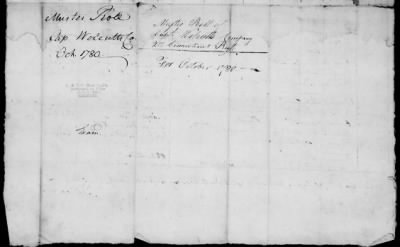 Muster Roll
Cap Wolcutts Co
Oct. 1780
Muster Roll of
Capt. Wolcutts Company
2d Connecticut Regt
For October 1780
Exam.